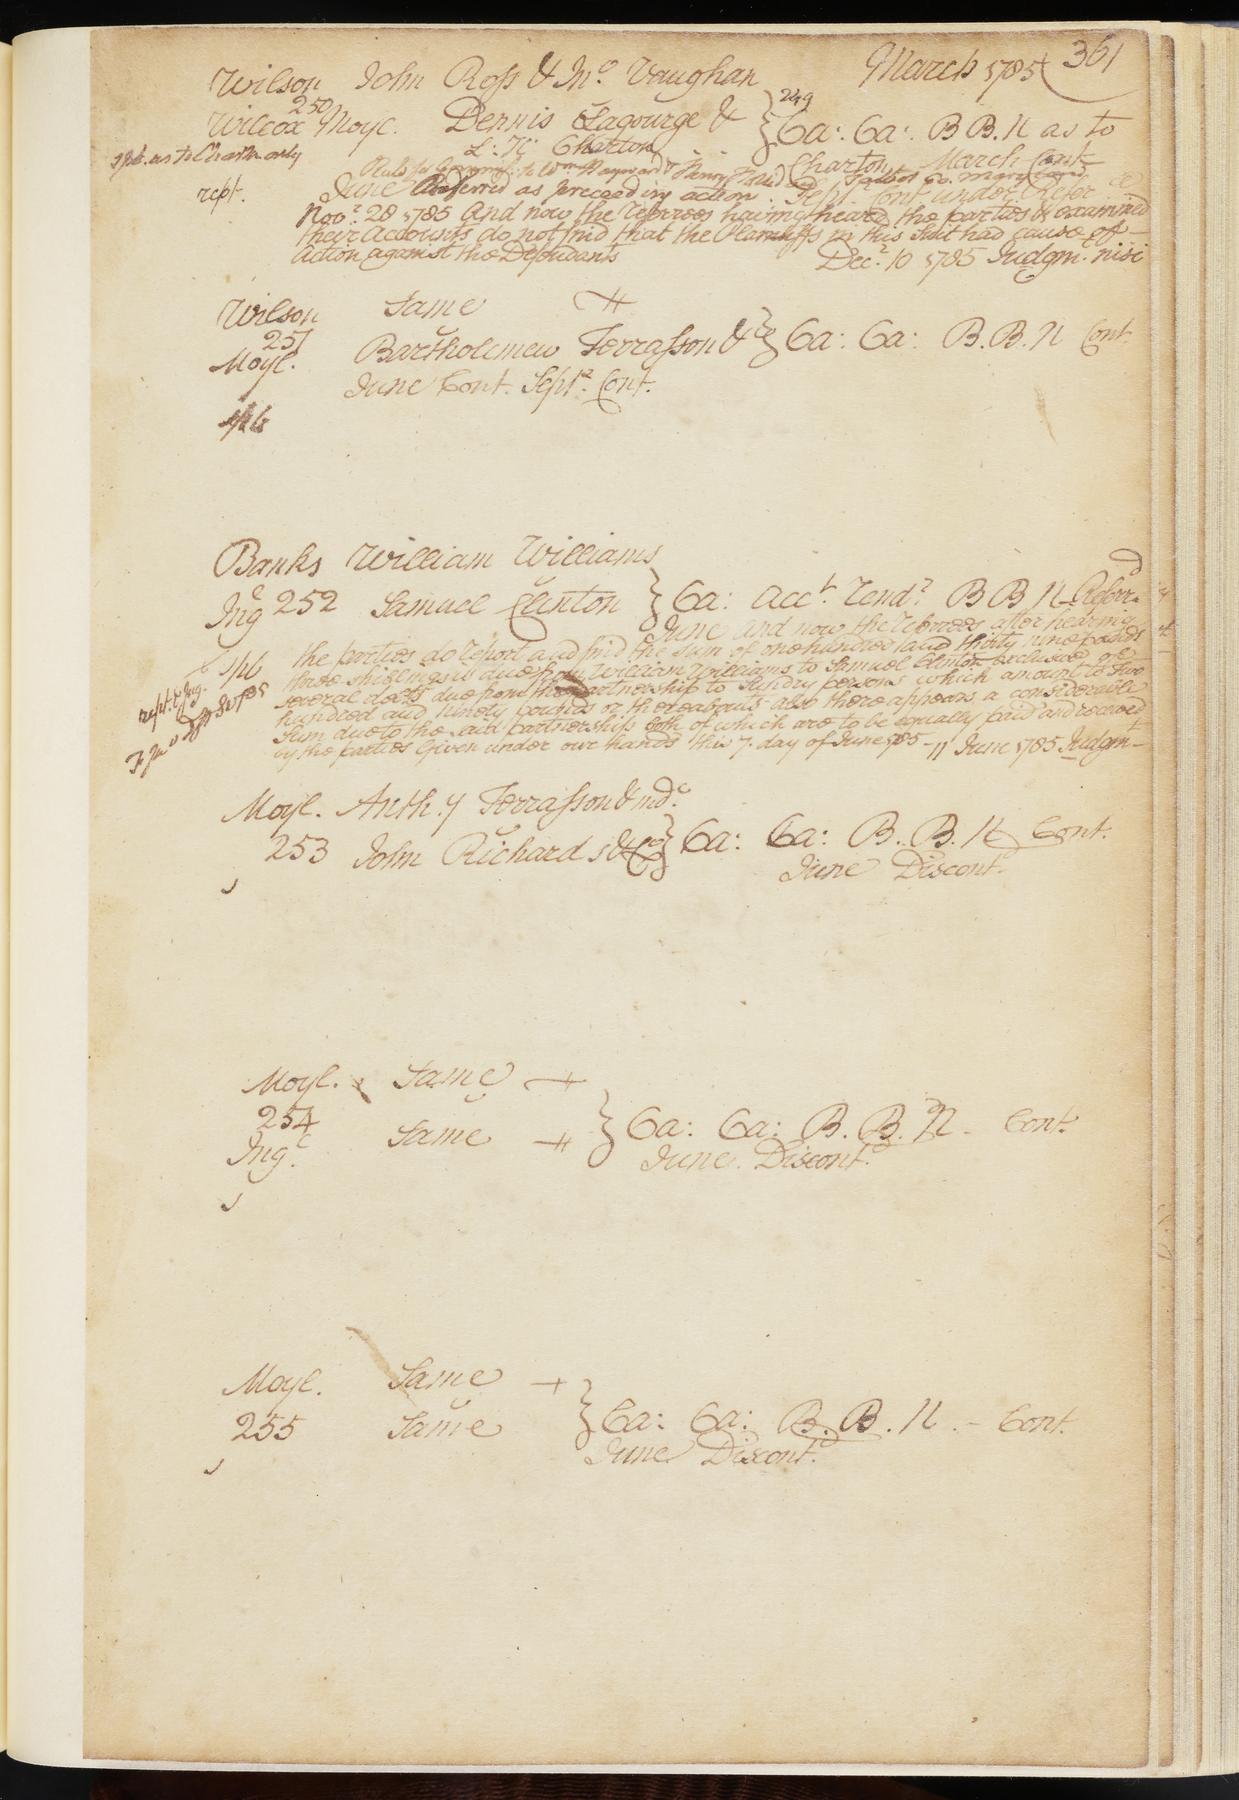 361
Wilson John Ross & Jno Vaughan March 1785
Wilcox 250 Moyl. Dennis Lagourge & } 249 Ca: Ca: B B. N as to
L: H: Charton Charton March Cont
spb. as to Charton only
rept. June Referred as preceeding action. Sept. Cont under Refer
Novr 28 1785 And now the Referrees having heard the parties & examined
their Accounts do not find that the Plaintiffs in this Suit had cause of
Action against the Defendants Decr 10 1785 Judgmt nisi
Wilson Same
257
Moyl. Bartholemew Terrasson & Co } Ca: Ca: B. B. N Cont
June Cont. Septr. Cont.
spb
Banks William Williams
Ing 252 Samuel Clinton } Ca: Acct. Rendr. B B N Referrd
June And now the Referrees after hearing
spb the parties do report and find the Sum of one hundred and thirty nine pounds
three shillings is due from William Williams to Samuel Clinton exclusive of
several debts due from the partnership to Sundry persons which amount to two
hundred and ninety pounds or thereabouts also there appears a considerable
Sum due to the said partnership both of which are to be equally paid and received
by the parties Given under our hands this 7. day of June 1785 - 11 June 1785 Judgmt
rept. & Ing.
Moyl. Anth.y Terrasson & Co
253 John Richards & Co } Ca: Ca: B. B. N Cont.
June Discont.
Moyl. Same
254
Ing. Same } Ca: Ca: B. B. N - Cont.
June. Discont.
Moyl. Same
255 Same } Ca: Ca: B. B. N. - Cont.
June Discont.